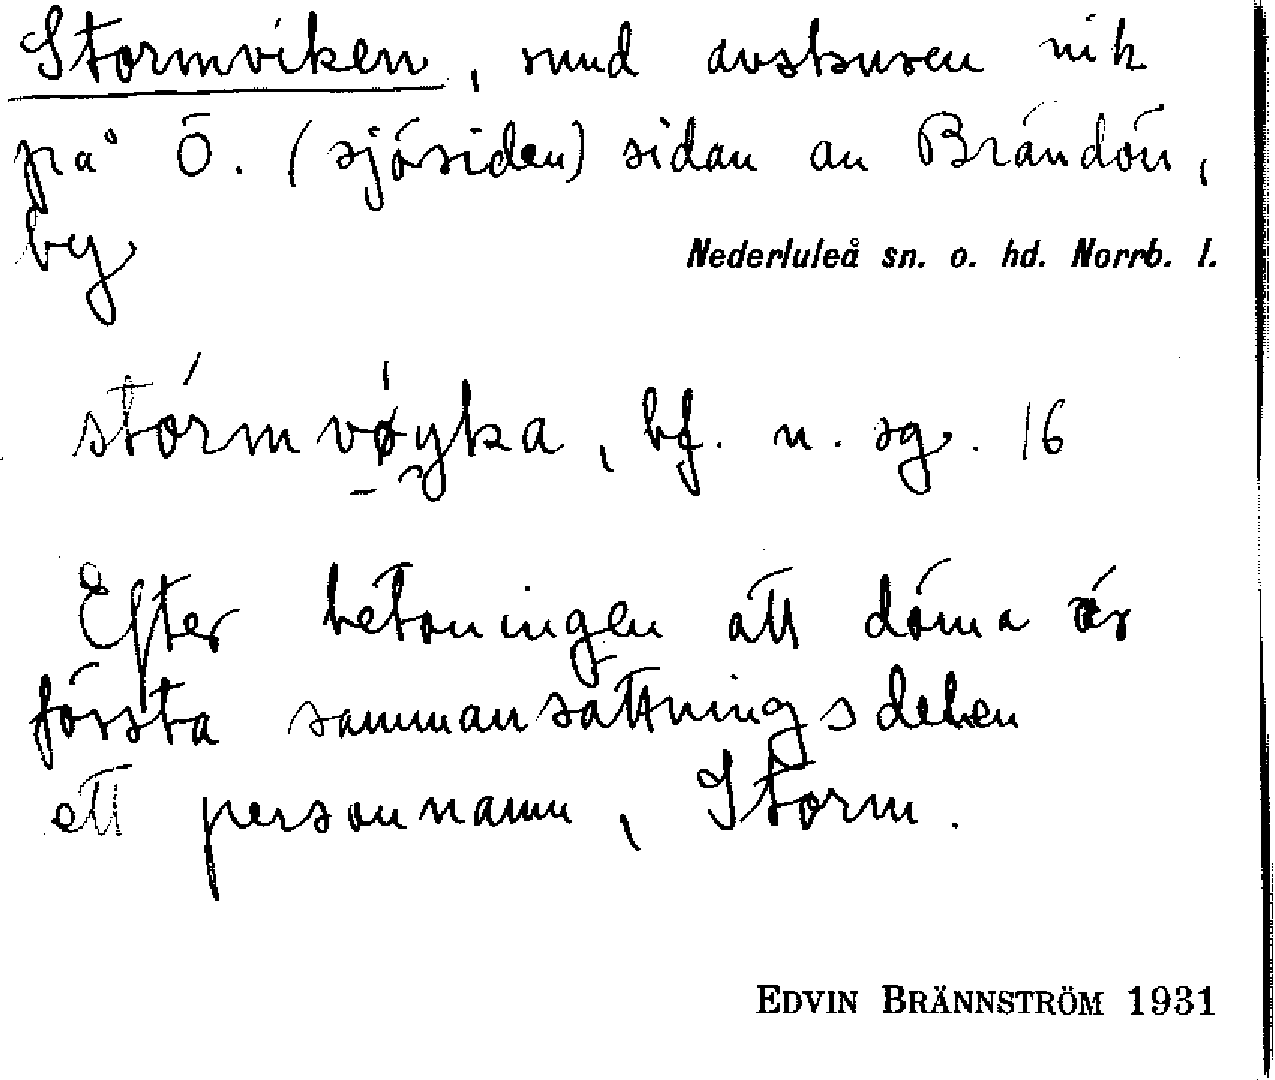 Stormviken, rund avskuren vik
på Ö. (sjösidan) sidan av Brändön,
by
Nederluleå sn. o. hd. Norrb. l.
stórmvø̀yka, bf. n. sg. 16
Efter betoningen att döma är
första sammansättningsdelen
ett personnamn, Storm.
EDVIN BRÄNNSTRÖM 1931